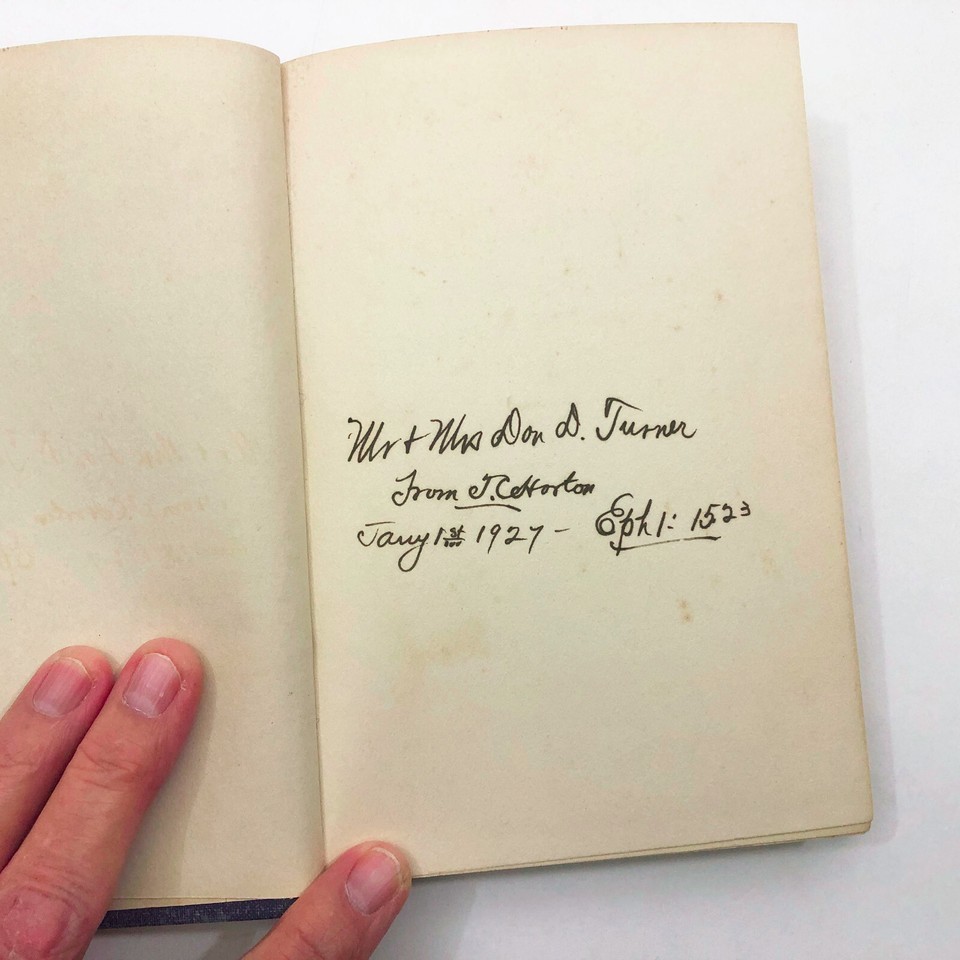 Mr + Mrs Don D. Turner
From T.C. Horton
Jany 1st 1927 - Eph 1: 15 23